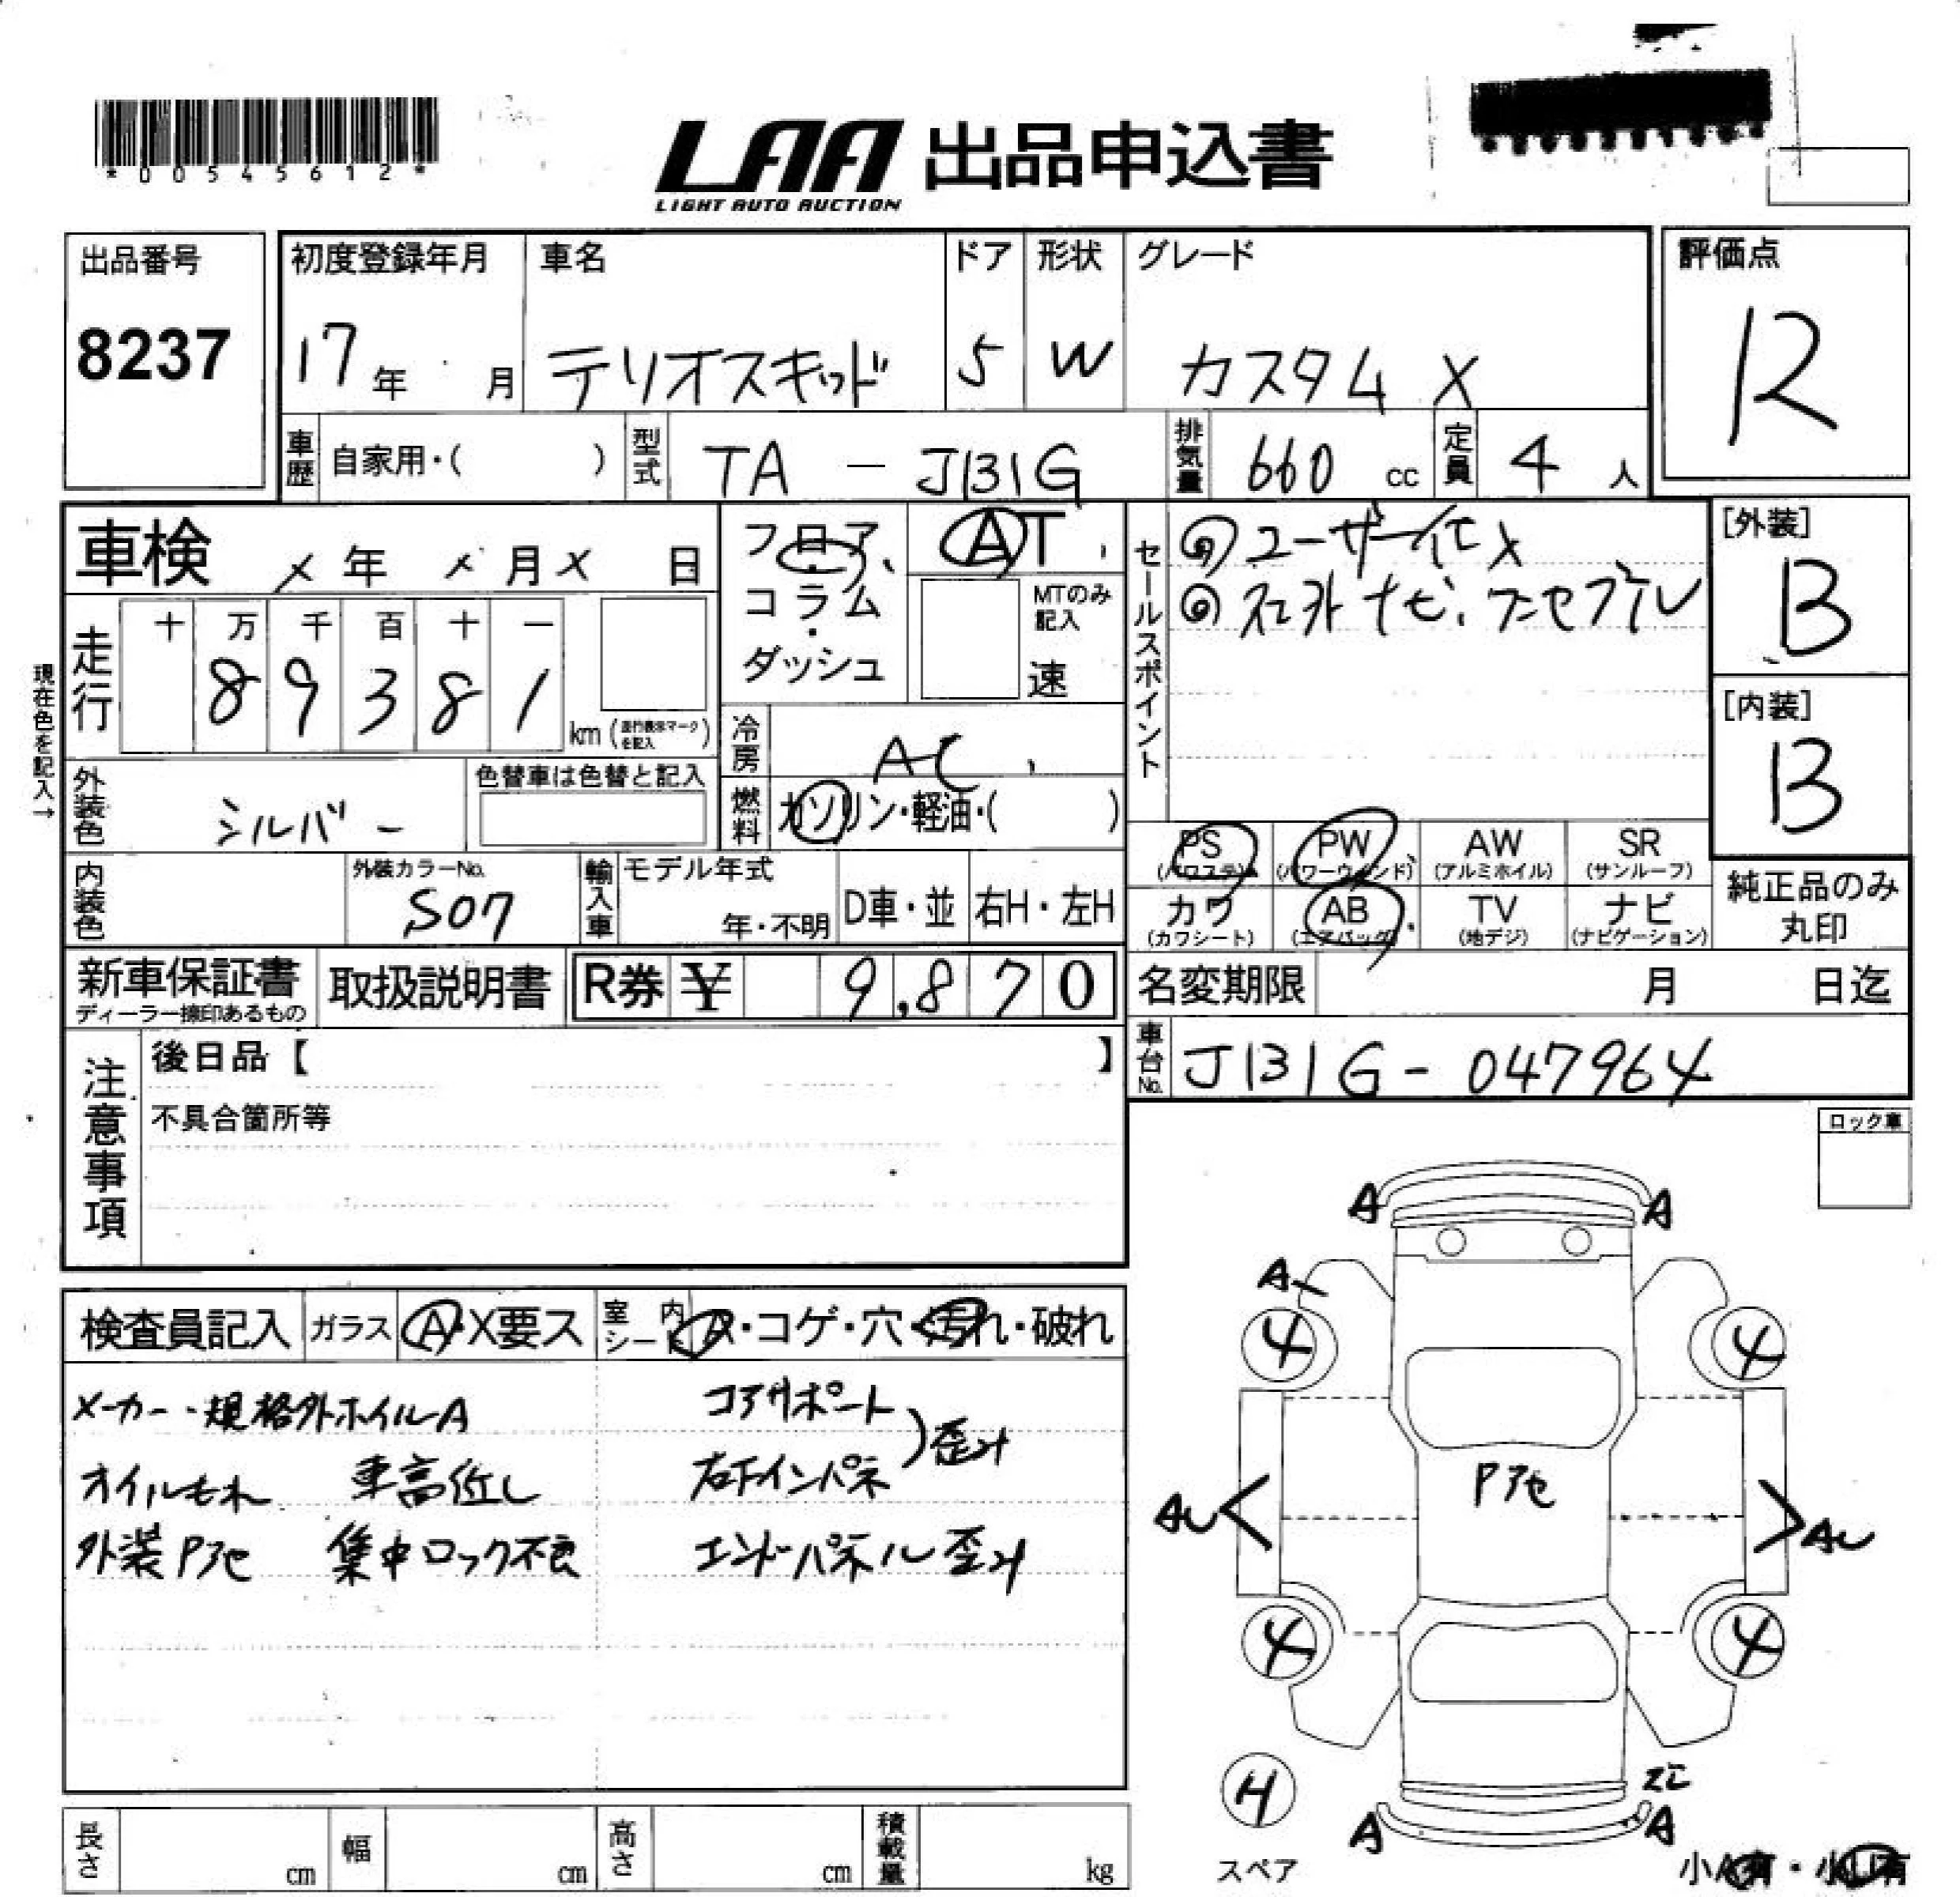 *00545612*
LAA 出品申込書
LIGHT AUTO AUCTION
出品番号
8237
初度登録年月
17年 月
車名
テリオスキッド
ドア
5
形状
W
グレード
カスタム X
評価点
R
車歴
自家用・( )
型式
TA - J131G
排気量
660 cc
定員
4 人
車検
X 年 X 月 X 日
フロア
・
コラム
・
ダッシュ
AT
MTのみ記入
速
セールスポイント
ユーザー
ナビ、
[外装]
B
[内装]
B
現在色を記入→
走行
十 万 千 百 十 一
8 9 3 8 1
km (走行表示マークを記入)
冷房
AC
燃料
ガソリン・軽油・( )
外装色
シルバー
色替車は色替と記入
PS
(パワステ)
PW
(パワーウインド)
AW
(アルミホイル)
SR
(サンルーフ)
カワ
(カワシート)
AB
(エアバッグ)
TV
(地デジ)
ナビ
(ナビゲーション)
純正品のみ
丸印
内装色
外装カラーNo.
S07
輸入車
モデル年式
年・不明
D車・並
右H・左H
新車保証書
ディーラー捺印あるもの
取扱説明書
R券 ¥ 9,870
名変期限
月 日迄
車台No.
J131G-047964
注意事項
後日品【 】
不具合箇所等
ロック車
検査員記入
ガラス
A・X要ス
室内
シート
ス・コゲ・穴・汚れ・破れ
メーカー・規格外ホイルA
オイルもれ 車高低し
外装Pアセ 集中ロック不良
コアサポート
右下インパネ
)歪み
エンドパネル歪み
A A
A
4 4
Pアセ
AU AU
4 4
A A
H
スペア
小A有・小U有
長さ
cm
幅
cm
高さ
cm
積載量
kg